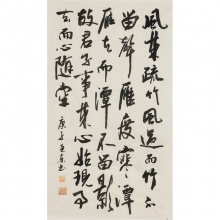 風来疏竹風過而竹不
留聲雁度寒潭
雁去而潭不留影
故君子事来心始現事
去而心隨空
庚子
書